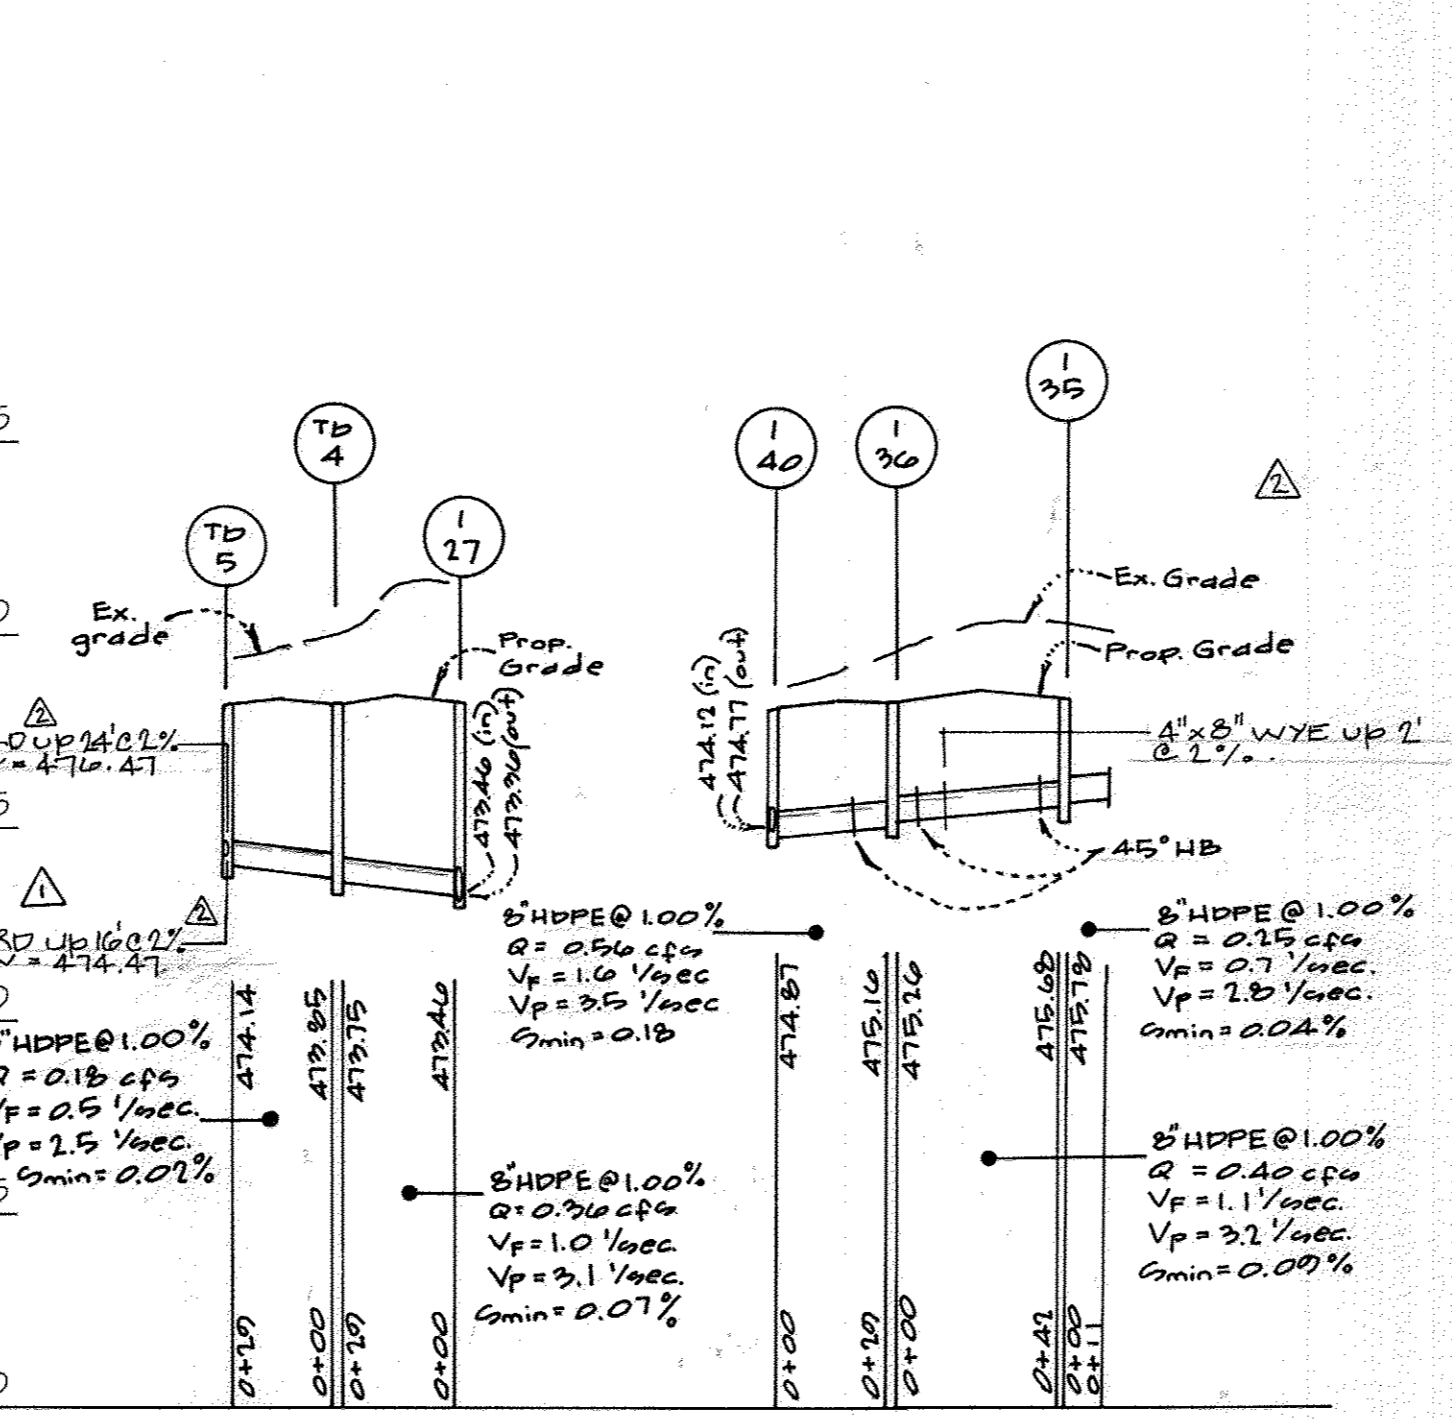 I
35
TD
4
I
40
I
36
TD
5
I
27
2
Ex.
grade
Prop.
Grade
Ex. Grade
Prop. Grade
473.46 (in)
473.36 (out)
474.12 (in)
474.77 (out)
2
UP 24' @ 2%
= 476.47
4"x8" WYE UP 2'
@ 2%.
45° HB
1
2
RD UP 16' @ 2%
= 474.47
8" HDPE @ 1.00%
Q = 0.56 cfs
VF = 1.6 '/sec
VP = 3.5 '/sec
Smin = 0.18
8" HDPE @ 1.00%
Q = 0.25 cfs
VF = 0.7 '/sec.
VP = 2.8 '/sec.
Smin = 0.04%
" HDPE @ 1.00%
= 0.18 cfs
F = 0.5 '/sec.
P = 2.5 '/sec.
Smin = 0.02%
8" HDPE @ 1.00%
Q = 0.36 cfs
VF = 1.0 '/sec.
VP = 3.1 '/sec.
Smin = 0.07%
8" HDPE @ 1.00%
Q = 0.40 cfs
VF = 1.1 '/sec.
VP = 3.2 '/sec.
Smin = 0.09%
474.14
473.85
473.75
473.46
474.87
475.16
475.26
475.68
475.78
0+29
0+00
0+29
0+00
0+00
0+29
0+00
0+42
0+00
0+11